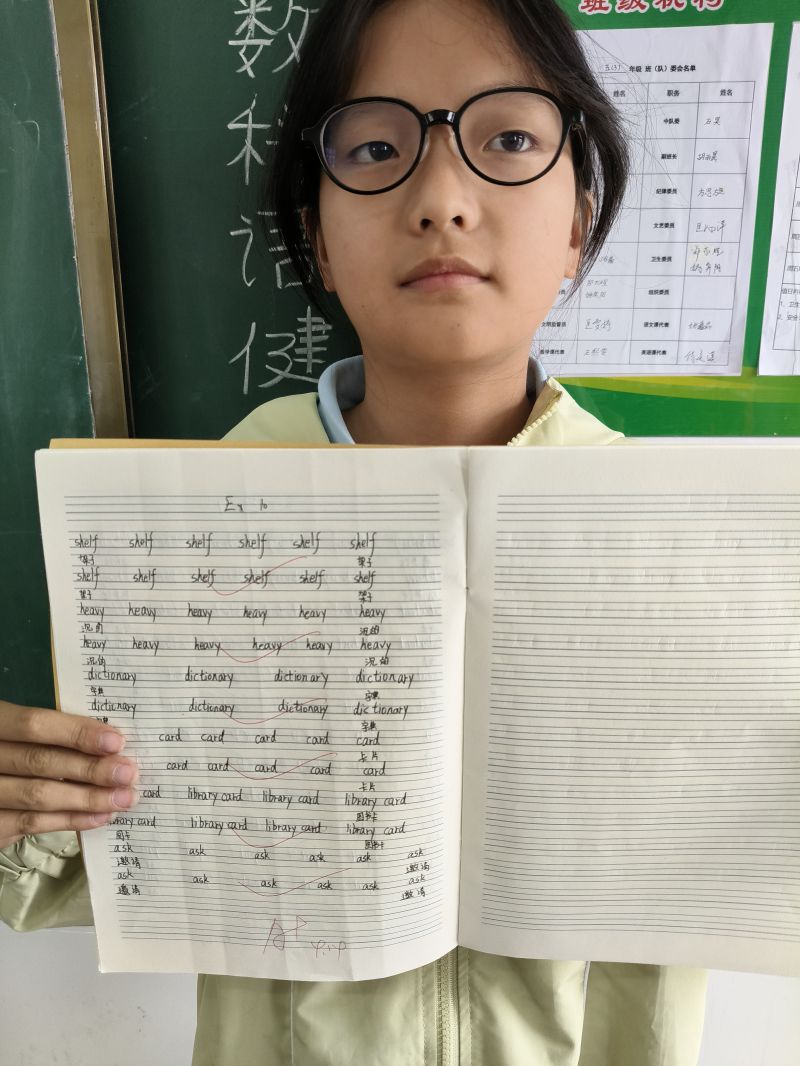 数
科
语
健
班级机构
五(3) 年级 班(队)委会名单
姓名 职务 姓名
中队委
副班长
纪律委员
文艺委员
卫生委员
组织委员
文明监督员 语文课代表
数学课代表 英语课代表
Ex 10
shelf shelf shelf shelf shelf shelf
架子 架子
shelf shelf shelf shelf shelf shelf
架子 架子
heavy heavy heavy heavy heavy heavy
沉的 沉的
heavy heavy heavy heavy heavy heavy
沉的 沉的
dictionary dictionary dictionary dictionary
字典 字典
dictionary dictionary dictionary dictionary
字典 字典
card card card card card
卡片
card card card card card
卡片
card library card library card library card
图书卡
library card library card library card library card
图卡 图书卡
ask ask ask ask ask ask
邀请 邀请
ask ask ask ask ask ask
邀请 邀请
A+